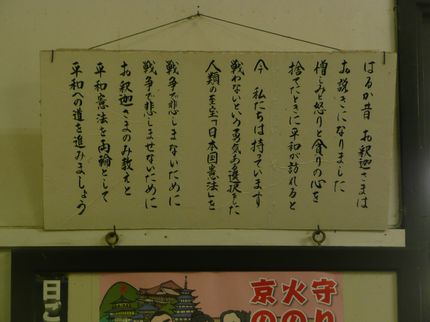 はるか昔 お釈迦さまは
お説きになりました
憎しみと怒りと貪りの心を
捨てたときに平和が訪れると
今 私たちは持っています
戦わないという勇気ある選択をした
人類の至宝「日本国憲法」を
戦争で悲しまないために
戦争で悲しませないために
お釈迦さまのみ教えと
平和憲法を両輪として
平和への道を進みましょう
日ご
京火守
ののり